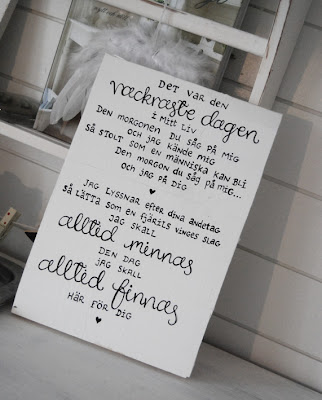 DET VAR DEN
vackraste dagen
i MiTT Liv
DEN MORGONEN DU SÅG PÅ MIG
OCH JAG KÄNDE MIG
SÅ STOLT SOM EN MÄNNISKA KAN BLI
DEN MORGON DU SÅG PÅ MIG...
OCH JAG PÅ DIG
♥
JAG LYSSNAR EFTER DINA ANDETAG
SÅ LÄTTA SOM EN FJÄRILS VINGES SLAG
JAG SKALL
alltid minnas
DEN DAG
JAG SKALL
alltid finnas
HÄR FÖR DIG
♥